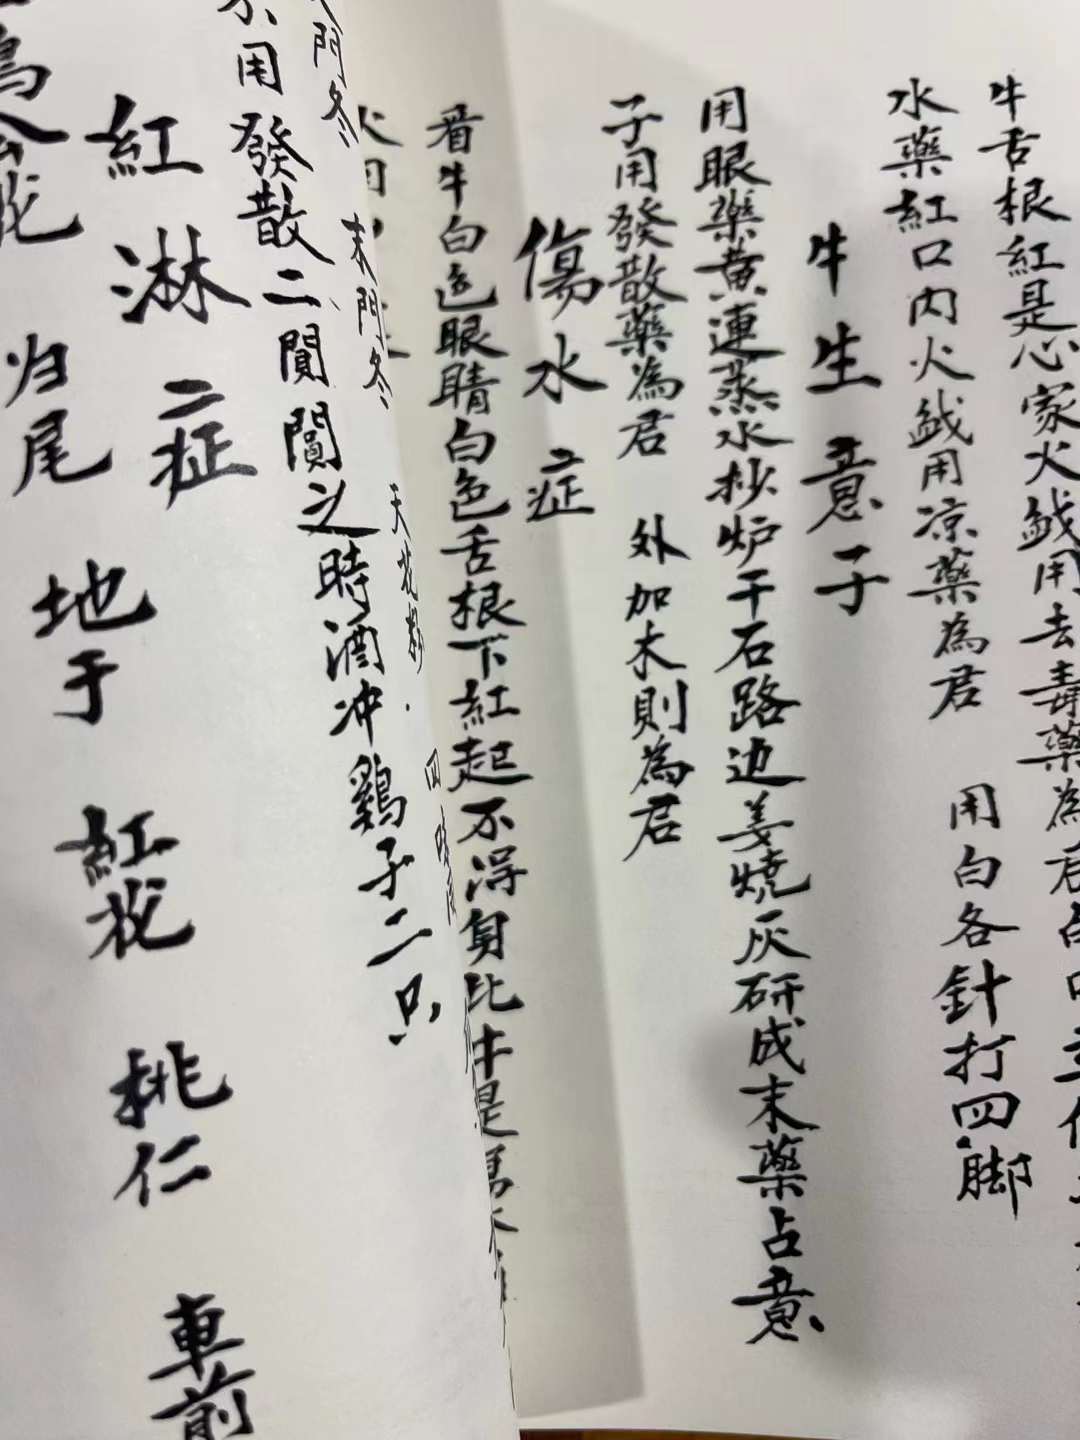 牛舌根紅是心家火㦸用去毒藥為君占口
水藥紅口内火㦸用凉藥為君　用白各針打四脚
牛生意子
用眼藥黄連蒸水抄炉干石路边姜燒灰研成末藥占意
子用發散藥為君　外加木則為君
傷水症
看牛白色眼睛白色舌根下紅起不得負比牛是
天花粉
末門冬
門冬
用發散二閴閴之時酒冲鷄子二只
紅淋症
归尾　地于　紅花　桃仁　車前